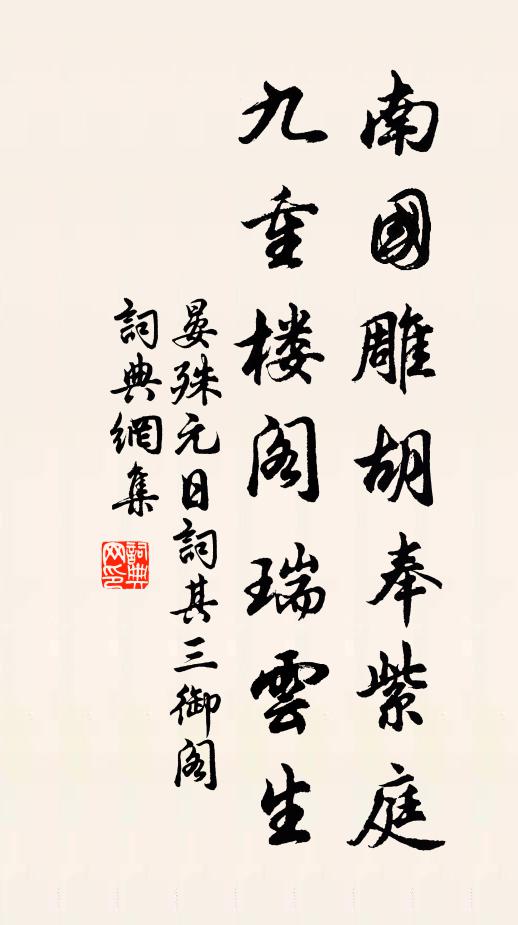 南國雕胡奉紫庭
九重楼阁瑞雲生
晏殊元日詞其三御阁
詞典網集
詞典网印